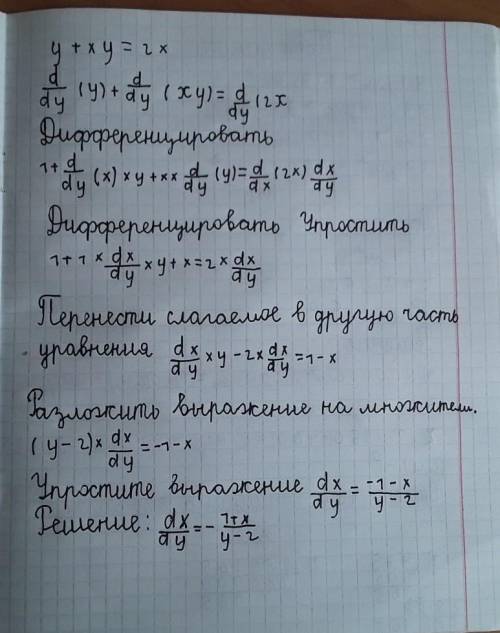 y + xy = 2x
d/dy (y) + d/dy (xy) = d/dy (2x
Дифференцировать
1+ d/dy (x) × y + x × d/dy (y) = d/dx (2x) dx/dy
Дифференцировать Упростить
1 + 1 × dx/dy × y + x = 2 × dx/dy
Перенести слагаемое в другую часть
уравнения dx/dy × y - 2 × dx/dy = 1 - x
Разложить выражение на множители.
(y - 2) × dx/dy = -1 - x
Упростите выражение dx/dy = -1 - x/y - 2
Решение: dx/dy = - 1+x/y - 2